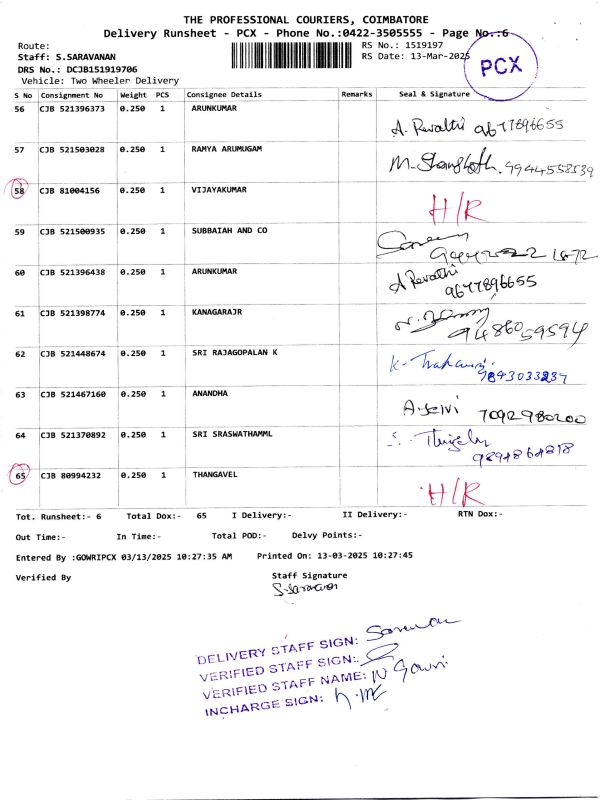 THE PROFESSIONAL COURIERS, COIMBATORE
Delivery Runsheet - PCX - Phone No.:0422-3505555 - Page No.:6
Route: RS No.: 1519197
Staff: S.SARAVANAN RS Date: 13-Mar-2025
PCX
DRS No.: DCJB151919706
Vehicle: Two Wheeler Delivery
S No Consignment No Weight PCS Consignee Details Remarks Seal & Signature
56 CJB 521396373 0.250 1 ARUNKUMAR
A. Revathi 9677896655
57 CJB 521503028 0.250 1 RAMYA ARUMUGAM
9944558539
58 CJB 81004156 0.250 1 VIJAYAKUMAR
H/R
59 CJB 521500935 0.250 1 SUBBAIAH AND CO
60 CJB 521396438 0.250 1 ARUNKUMAR
A Revathi
9677896655
61 CJB 521398774 0.250 1 KANAGARAJR
9486059594
62 CJB 521448674 0.250 1 SRI RAJAGOPALAN K
9843033239
63 CJB 521467160 0.250 1 ANANDHA
A. Selvi 7092980200
64 CJB 521370892 0.250 1 SRI SRASWATHAMML
9894864818
65 CJB 80994232 0.250 1 THANGAVEL
H/R
Tot. Runsheet:- 6 Total Dox:- 65 I Delivery:- II Delivery:- RTN Dox:-
Out Time:- In Time:- Total POD:- Delvy Points:-
Entered By :GOWRIPCX 03/13/2025 10:27:35 AM Printed On: 13-03-2025 10:27:45
Verified By Staff Signature
S. Saravanan
DELIVERY STAFF SIGN:
VERIFIED STAFF SIGN:
VERIFIED STAFF NAME: N Gowri
INCHARGE SIGN: